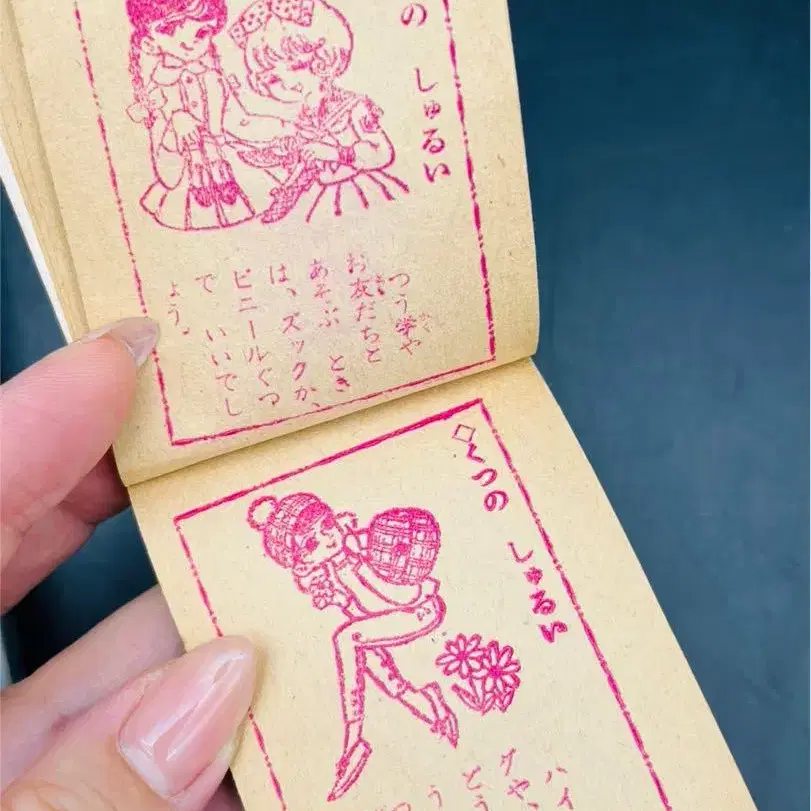 の しゅるい
つう学や
お友だちと
あそぶ とき
は、ズックか、
ビニールぐつ
で いいでし
ょう。
◇くつの しゅるい
ハイ
グや
とう
う
つ